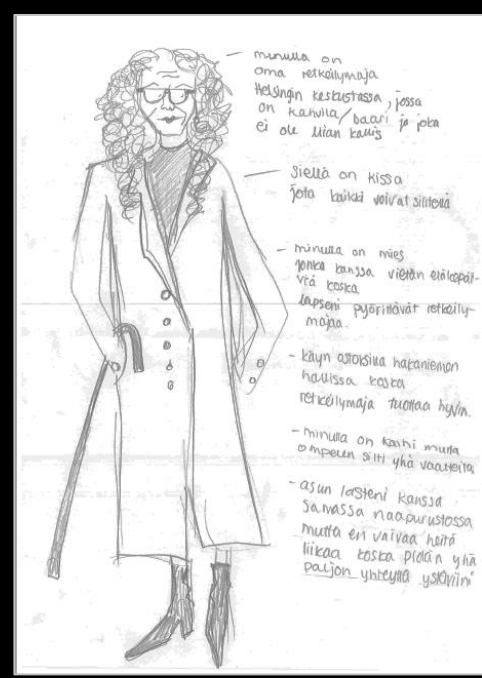 – minulla on
oma retkeilymaja
Helsingin keskustassa, jossa
on kahvila/baari ja joka
ei ole liian kallis
– Siellä on kissa
jota kaikki voivat silitellä
– minulla on mies
jonka kanssa vietän eläkepäi-
viä koska
lapseni pyörittävät retkeily-
majaa.
– käyn ostoksilla hakaniemen
hallissa koska
retkeilymaja tuottaa hyvin.
– minulla on kaihi mutta
ompelen silti yhä vaatteita
– asun lasteni kanssa
samassa naapurustossa
mutta en vaivaa heitä
liikaa koska pidän yhä
paljon yhteyttä ystäviini